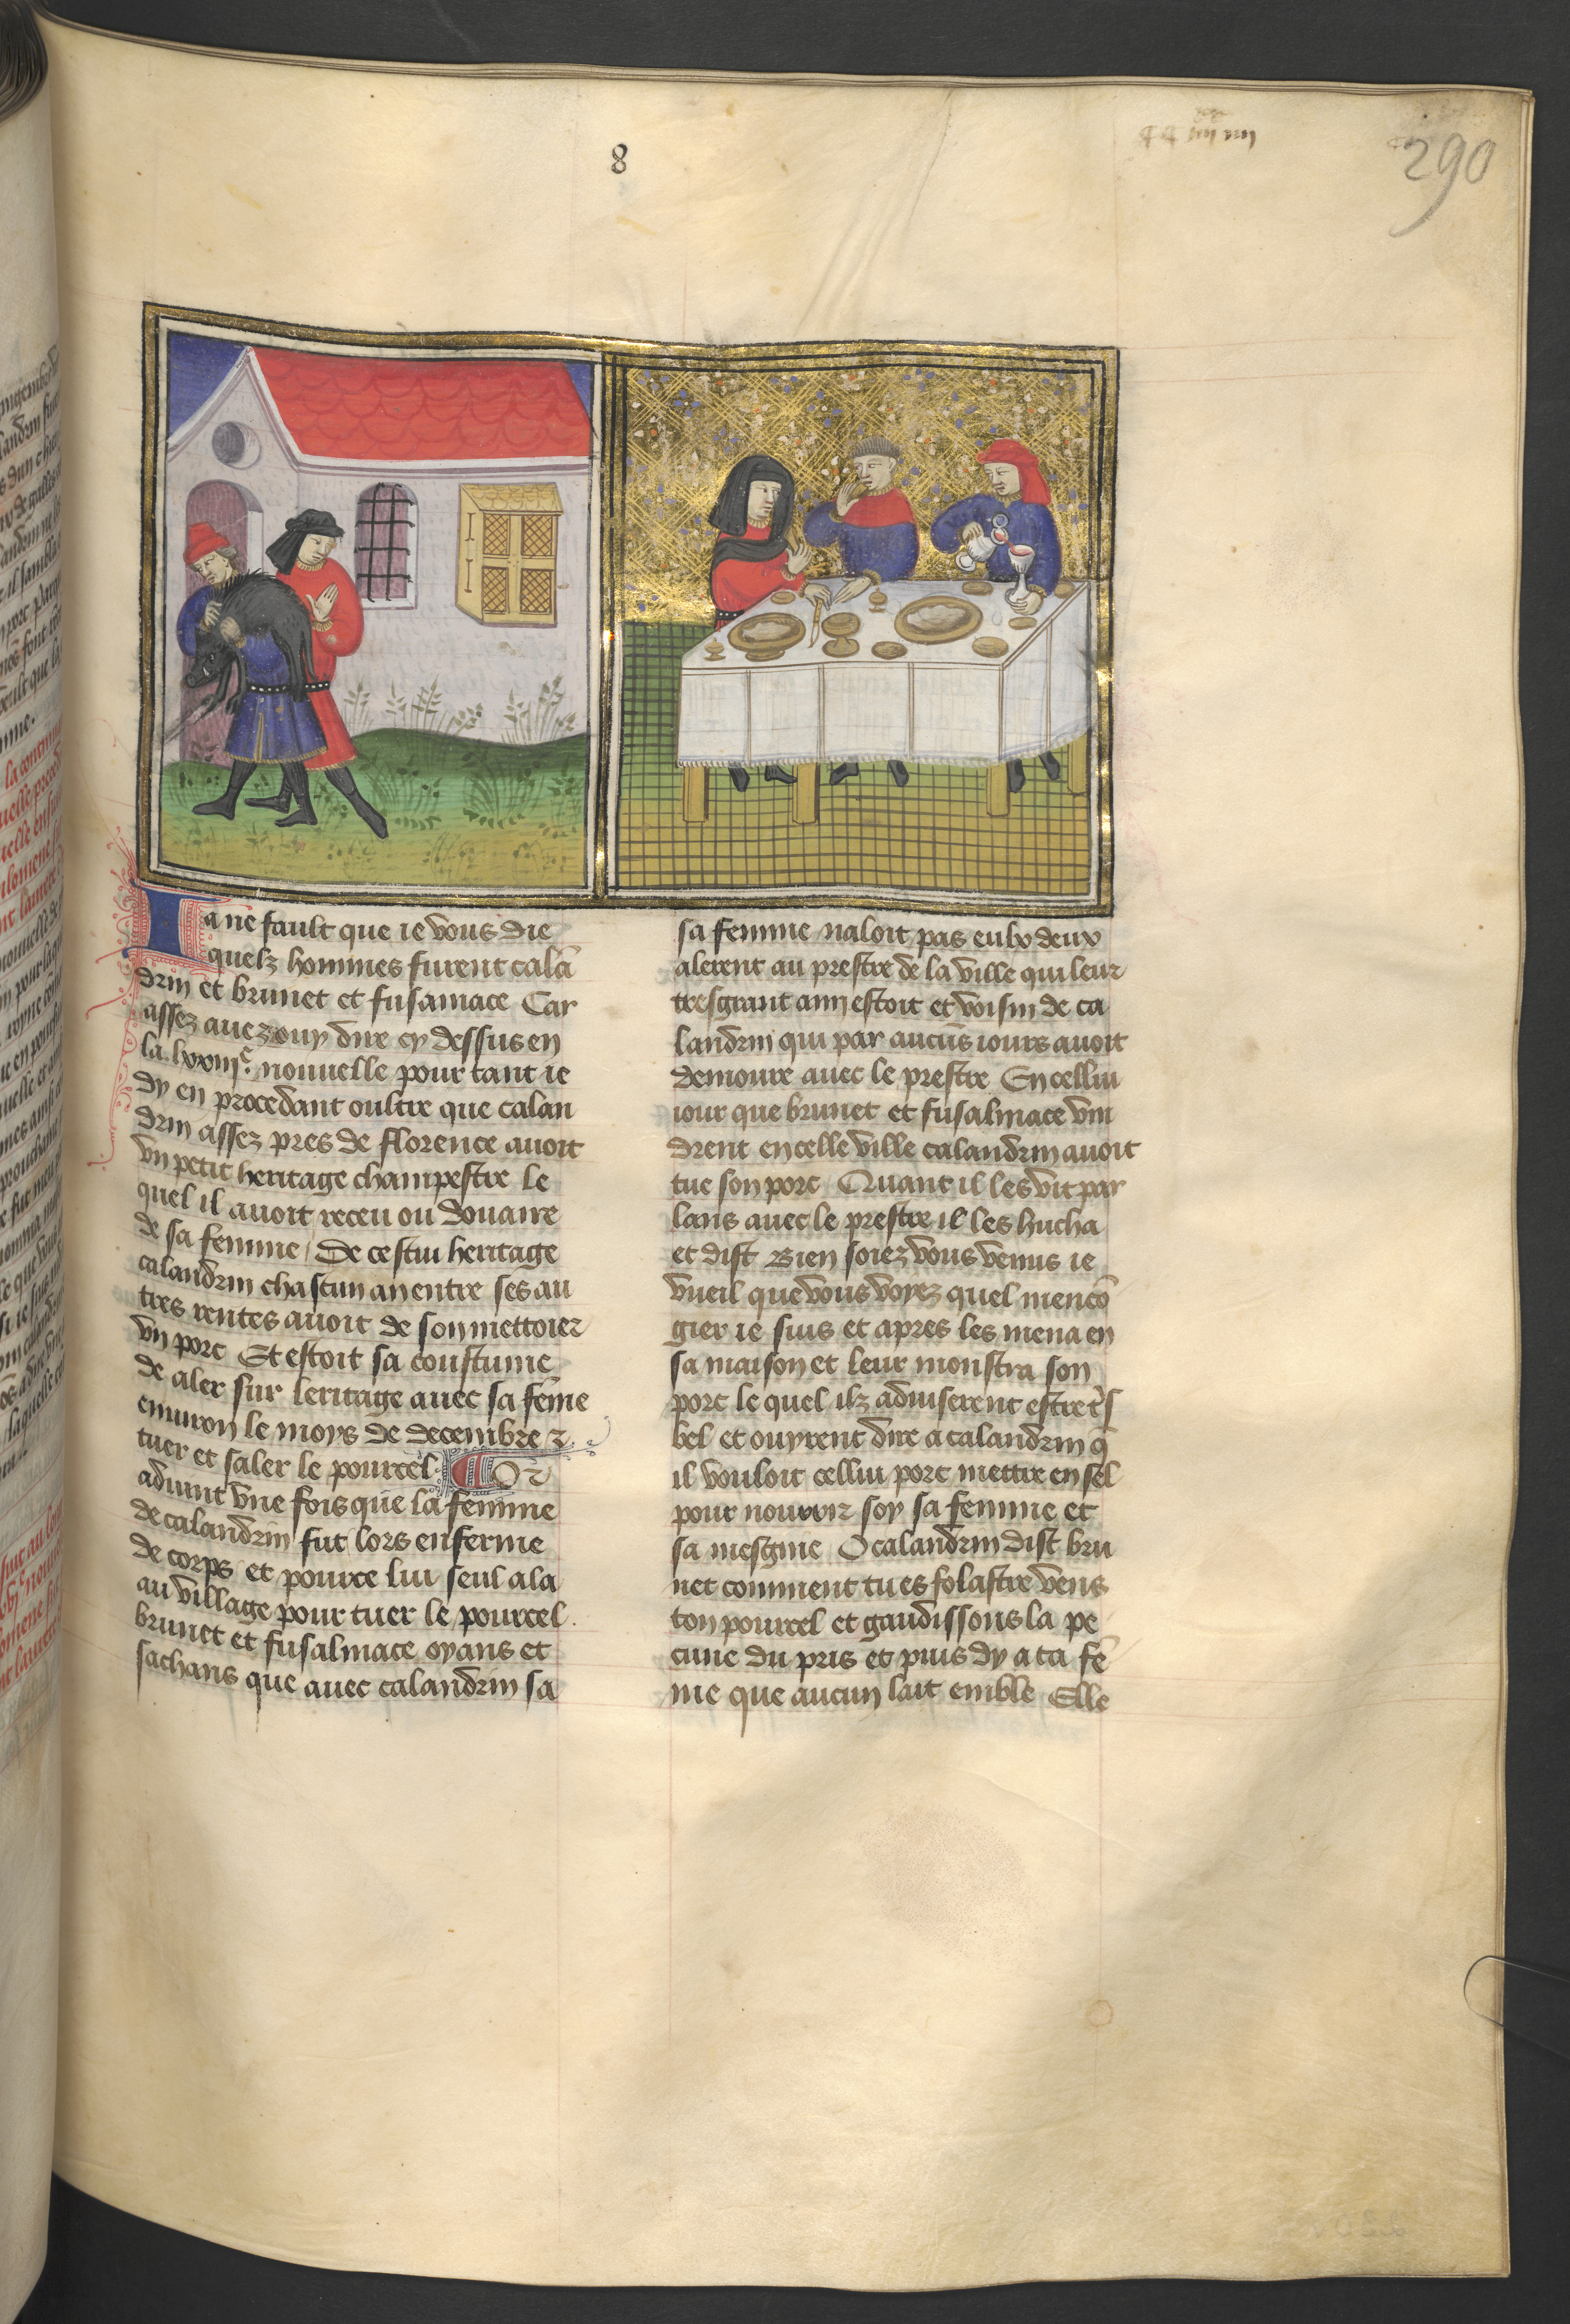 8
290
Ia ne fault que ie vous die
quelz hommes furent calã
drin et brunet et fusamace Car
assez auez ouy dire cy dessus en
la .lxxiiiᵉ. nouuelle pour tant ie
dy en procedant oultre que calan
drin assez pres de florence auoit
vn petit heritage champestre le
quel il auoit receu ou douaire
de sa femme / De cestui heritage
calandrin chascun an entre ses au
tres rentes auoit de son mettoier
vn porc Et estoit sa coustume
de aler sur leritage auec sa fẽme
enuiron le moys de decembre ⁊
tuer et saler le pourcel Or
aduint vne fois que la femme
de calandrin fut lors enferme
de corps et pource lui seul ala
au village pour tuer le pourcel .
brunet et fusalmace oyans et
sachans que auec calandrin sa
sa femme naloit pas eulx deux
alerent au prestre de la ville qui leur
tresgrant amy estoit et voisin de ca
landrin qui par aucũs iours auoit
demoure auec le prestre En cellui
iour que brunet et fusalmace vin
drent en celle ville calandrin auoit
tue son porc / Quant il les vit par
lans auec le prestre il les hucha
et dist Bien soiez vous venus ie
vueil que vous voyez quel mencõ
gier ie suis et apres les mena en
sa maison et leur monstra son
porc le quel ilz aduiserent estre
bel et ouyrent dire a calandrin q̃
il vouloit cellui porc mettre en sel
pour nourrir soy sa femme et
sa mesgnie O calandrin dist bru
net comment tu es folastre vens
ton pourcel et gaudissons la pe
cune du pris et puis dy a ta fẽ
me que aucun lait emble Elle